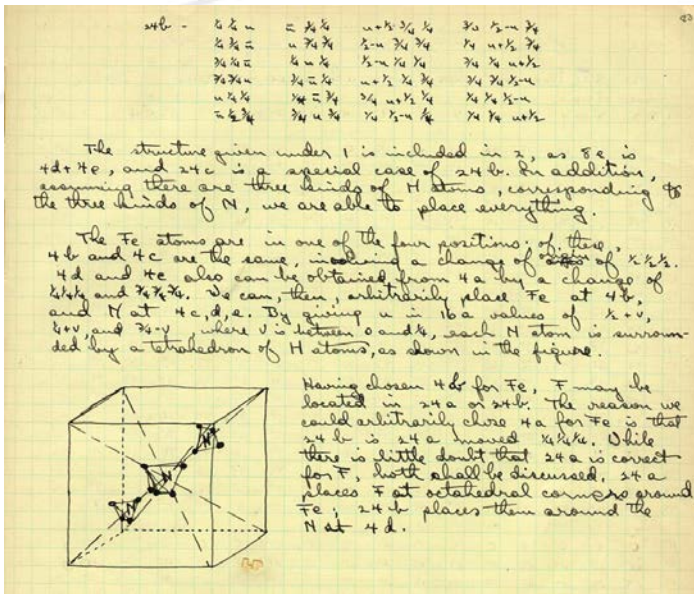 24b - ¼ ¼ u ū ¾ ¼ u+½ ¾ ¼ ¾ ½-u ¾
¼ ¾ ū u ¾ ¾ ½-u ¾ ¾ ¼ u+½ ¾
¾ ¼ ū ¼ u ¼ ½-u ¼ ¼ ¾ ¼ u+½
¾ ¾ u ¾ ū ¼ u+½ ¼ ¾ ¾ ¾ ½-u
u ¼ ¼ ¼ ū ¾ ¾ u+½ ¼ ¼ ¼ ½-u
ū ½ ¾ ¾ u ¾ ¼ ½-u ¼ ¼ ¾ u+½
The structure given under 1 is included in 2, as 8e is
4d+4e, and 24c is a special case of 24b. In addition,
assuming there are three kinds of H atoms, corresponding to
the three kinds of N, we are able to place everything.
The Fe atoms are in one of the four positions; of these,
4b and 4c are the same, involving a change of of ½ ½ ½.
4d and 4e also can be obtained from 4a by a change of
¼ ¼ ¼ and ¾ ¾ ¾. We can, then, arbitrarily place Fe at 4b,
and N at 4c, d, e. By giving u in 16a values of ½+v,
¼+v, and ¾-v, where v is between 0 and ¼, each N atom is surroun-
ded by a tetrahedron of H atoms, as shown in the figure.
Having chosen 4b for Fe, F may be
located in 24a or 24b. The reason we
could arbitrarily chose 4a for Fe is that
24b is 24a moved ¼ ¼ ¼. While
there is little doubt that 24a is correct
for F, both shall be discussed. 24a
places F at octahedral corners around
Fe; 24b places them around the
N at 4d.
N
N
N